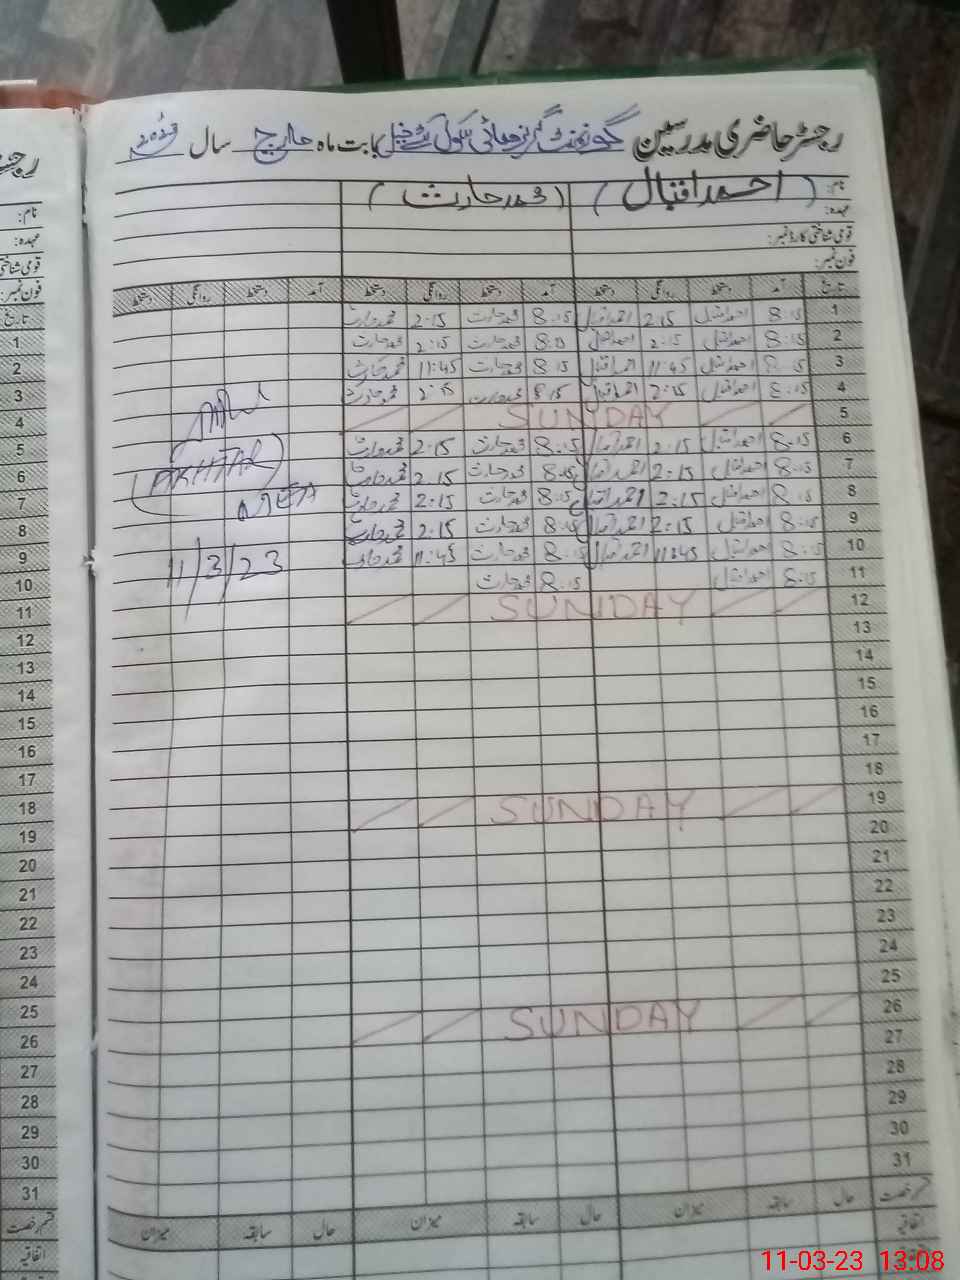 رجسٹر حاضری مدرسین گورنمنٹ گرلز ہائی سکول بابت ماہ مارچ سال 2023
نام: (احمد اقبال) (محمد حارث)
عہدہ:
قومی شناختی کارڈ نمبر:
فون نمبر:
تاریخ آمد دستخط روانگی دستخط آمد دستخط روانگی دستخط آمد دستخط روانگی دستخط
1 8:15 احمد اقبال 2:15 احمد اقبال 8:15 محمد حارث 2:15 محمد حارث
2 8:15 احمد اقبال 2:15 احمد اقبال 8:15 محمد حارث 2:15 محمد حارث
3 8:15 احمد اقبال 11:45 احمد اقبال 8:15 محمد حارث 11:45 محمد حارث
4 8:15 احمد اقبال 2:15 احمد اقبال 8:15 محمد حارث 2:15 محمد حارث
5 SUNDAY
6 8:15 احمد اقبال 2:15 احمد اقبال 8:15 محمد حارث 2:15 محمد حارث
7 8:15 احمد اقبال 2:15 احمد اقبال 8:15 محمد حارث 2:15 محمد حارث
8 8:15 احمد اقبال 2:15 احمد اقبال 8:15 محمد حارث 2:15 محمد حارث
9 8:15 احمد اقبال 2:15 احمد اقبال 8:15 محمد حارث 2:15 محمد حارث
10 8:15 احمد اقبال 11:45 احمد اقبال 8:15 محمد حارث 11:45 محمد حارث
11 8:15 احمد اقبال 8:15 محمد حارث
12 SUNDAY
13
14
15
16
17
18
19 SUNDAY
20
21
22
23
24
25
26 SUNDAY
27
28
29
30
31
قسم رخصت حال سابقہ میزان حال سابقہ میزان حال سابقہ میزان
اتفاقیہ
(AKHTAR)
MEA
11/3/23
نام:
عہدہ:
قومی شناختی
فون نمبر:
تاریخ
1
2
3
4
5
6
7
8
9
10
11
12
13
14
15
16
17
18
19
20
21
22
23
24
25
26
27
28
29
30
31
قسم رخصت
اتفاقیہ
11-03-23 13:08